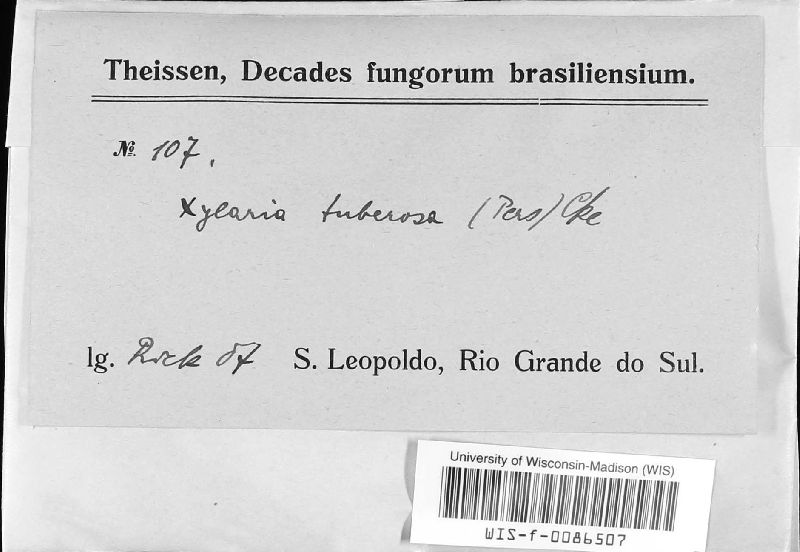 Theissen, Decades fungorum brasiliensium.
№ 107.
Xylaria tuberosa (Pers) Cke
lg. Rick 07 S. Leopoldo, Rio Grande do Sul.
University of Wisconsin-Madison (WIS)
WIS-f-0086507